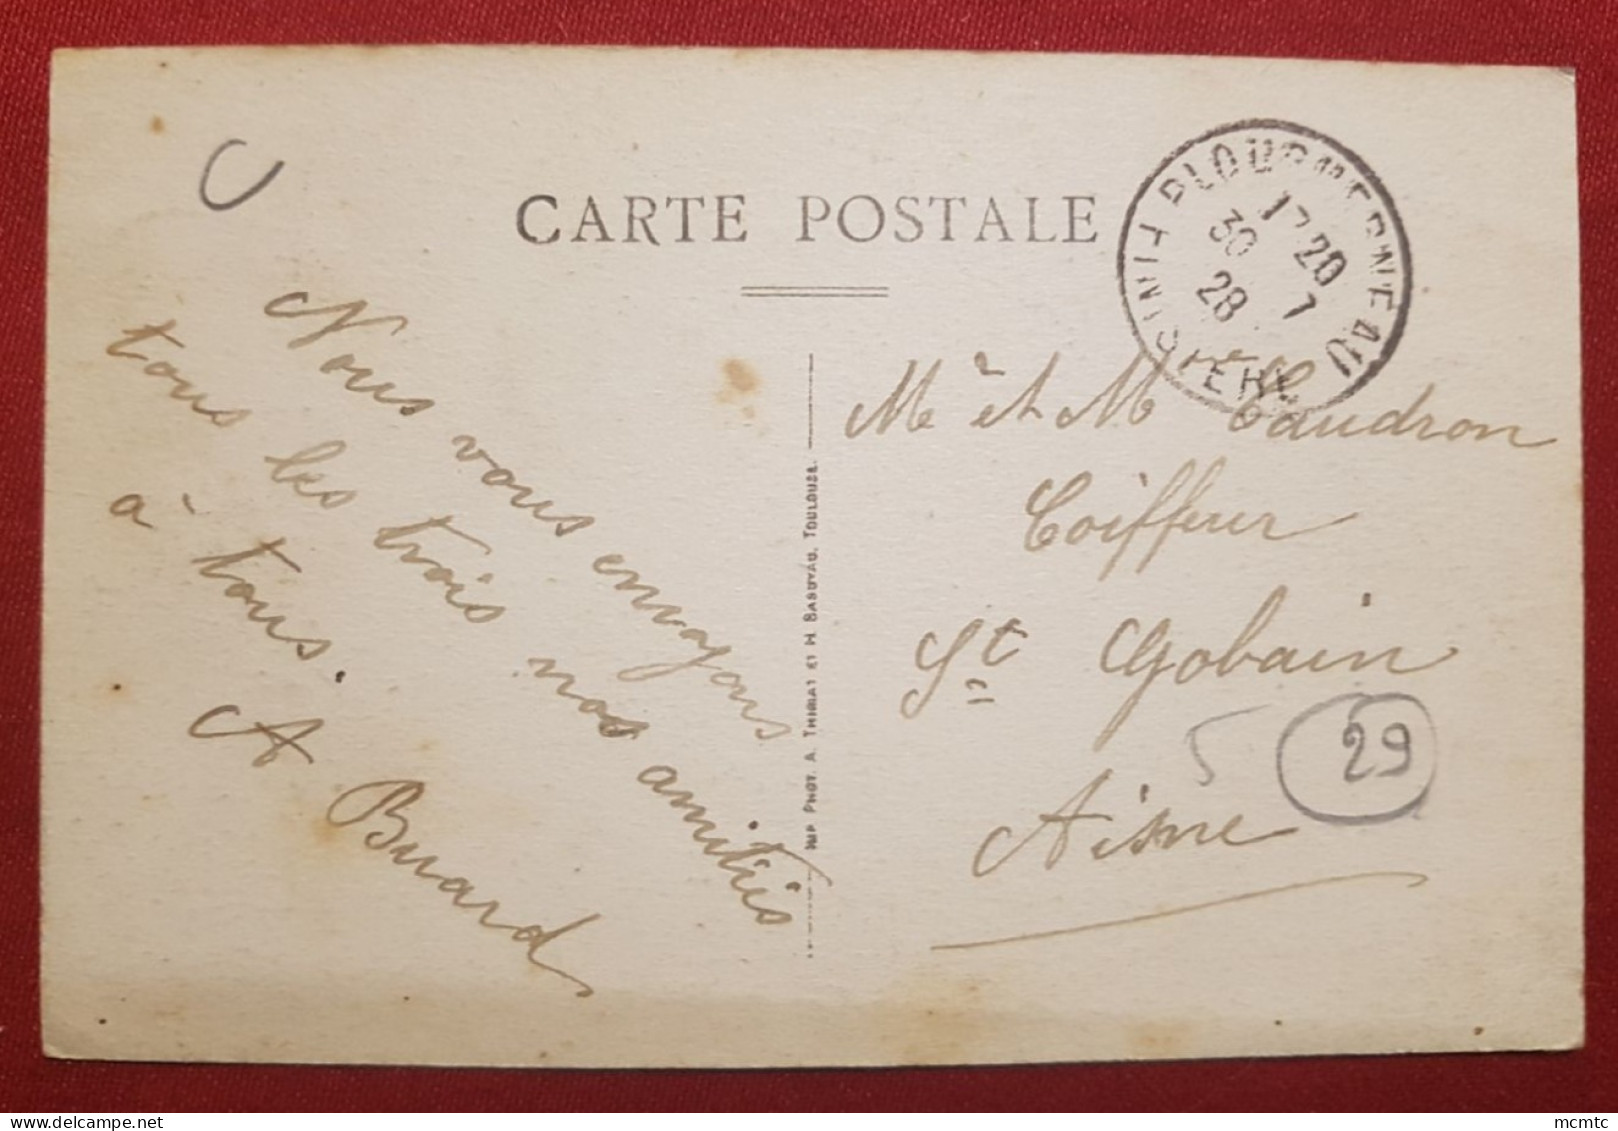 CARTE POSTALE
PLOUGUERNEAU
17 20
30 7
28
FINISTÈRE
Nous vous envoyons
tous les trois nos amitiés
à tous.
A Buard
IMP PHOT. A. THIRIAT ET H BASUYAU, TOULOUSE.
Me et M Caudron
Coiffeur
St Gobain
5
29
Aisne
mcmtc